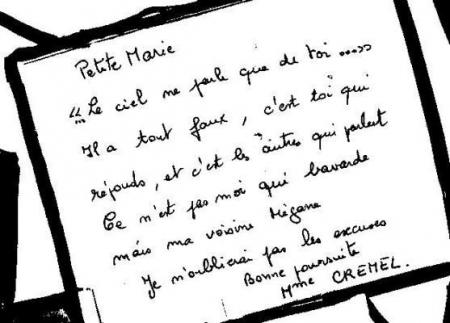 Petite Marie
"Le ciel me parle que de toi ....."
Il a tout faux, c'est "toi" qui
réponds, et c'est les "autres" qui parlent
Ce n'est pas moi qui bavarde
mais ma voisine Mégane
Je n'oublierai pas les excuses
Bonne poursuite
Mme CREMEL.